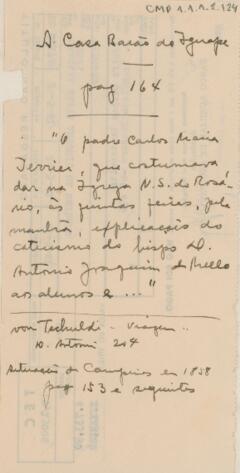 CMP 1.1.1.2.124
A Casa Barão do Iguape
pag 164
"O padre Carlos Maria
Terrier, que costumava
dar na Igreja N.S. do Rosá-
rio, às quintas feiras, pela
manhã, explicação do
catecismo do bispo D.
Antonio Joaquim de Mello
aos alunos e ..."
von Tschuldi - Viagem..
204
situação de Campinas en 1858
pag 153 e seguintes